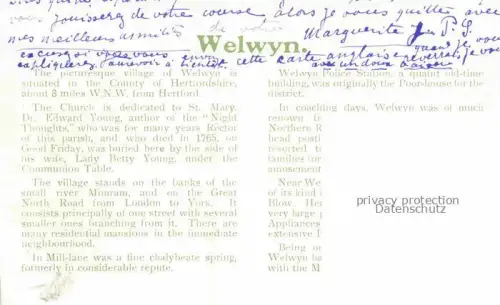 vous jouissez de votre course alors je vous quittes avec
mes meilleurs amitiés de votre Marguerite P.S.
excusez si vous envoie cette carte anglais quand je vous
Welwyn.
The picturesque village of Welwyn is
situated in the County of Hertfordshire,
about 8 miles W.N.W. from Hertford.
The Church is dedicated to St. Mary.
Dr. Edward Young, author of the "Night
Thoughts," who was for many years Rector
of this parish, and who died in 1765, on
Good Friday, was buried here by the side of
his wife, Lady Betty Young, under the
Communion Table.
The village stands on the banks of the
small river Mimram, and on the Great
North Road from London to York. It
consists principally of one street with several
smaller ones branching from it. There are
many residential mansions in the immediate
neighbourhood.
In Mill-lane was a fine chalybeate spring,
formerly in considerable repute.
Welwyn Police Station, a quaint old-time
building, was originally the Poor-house for the
district.
In coaching days, Welwyn was of much
renown
Northern R
head posti
resorted to
families
amusement
Near We
of its kind
Blow. Her
very large
Appliances
extensive
Being
Welwyn ha
with the M
privacy protection
Datenschutz